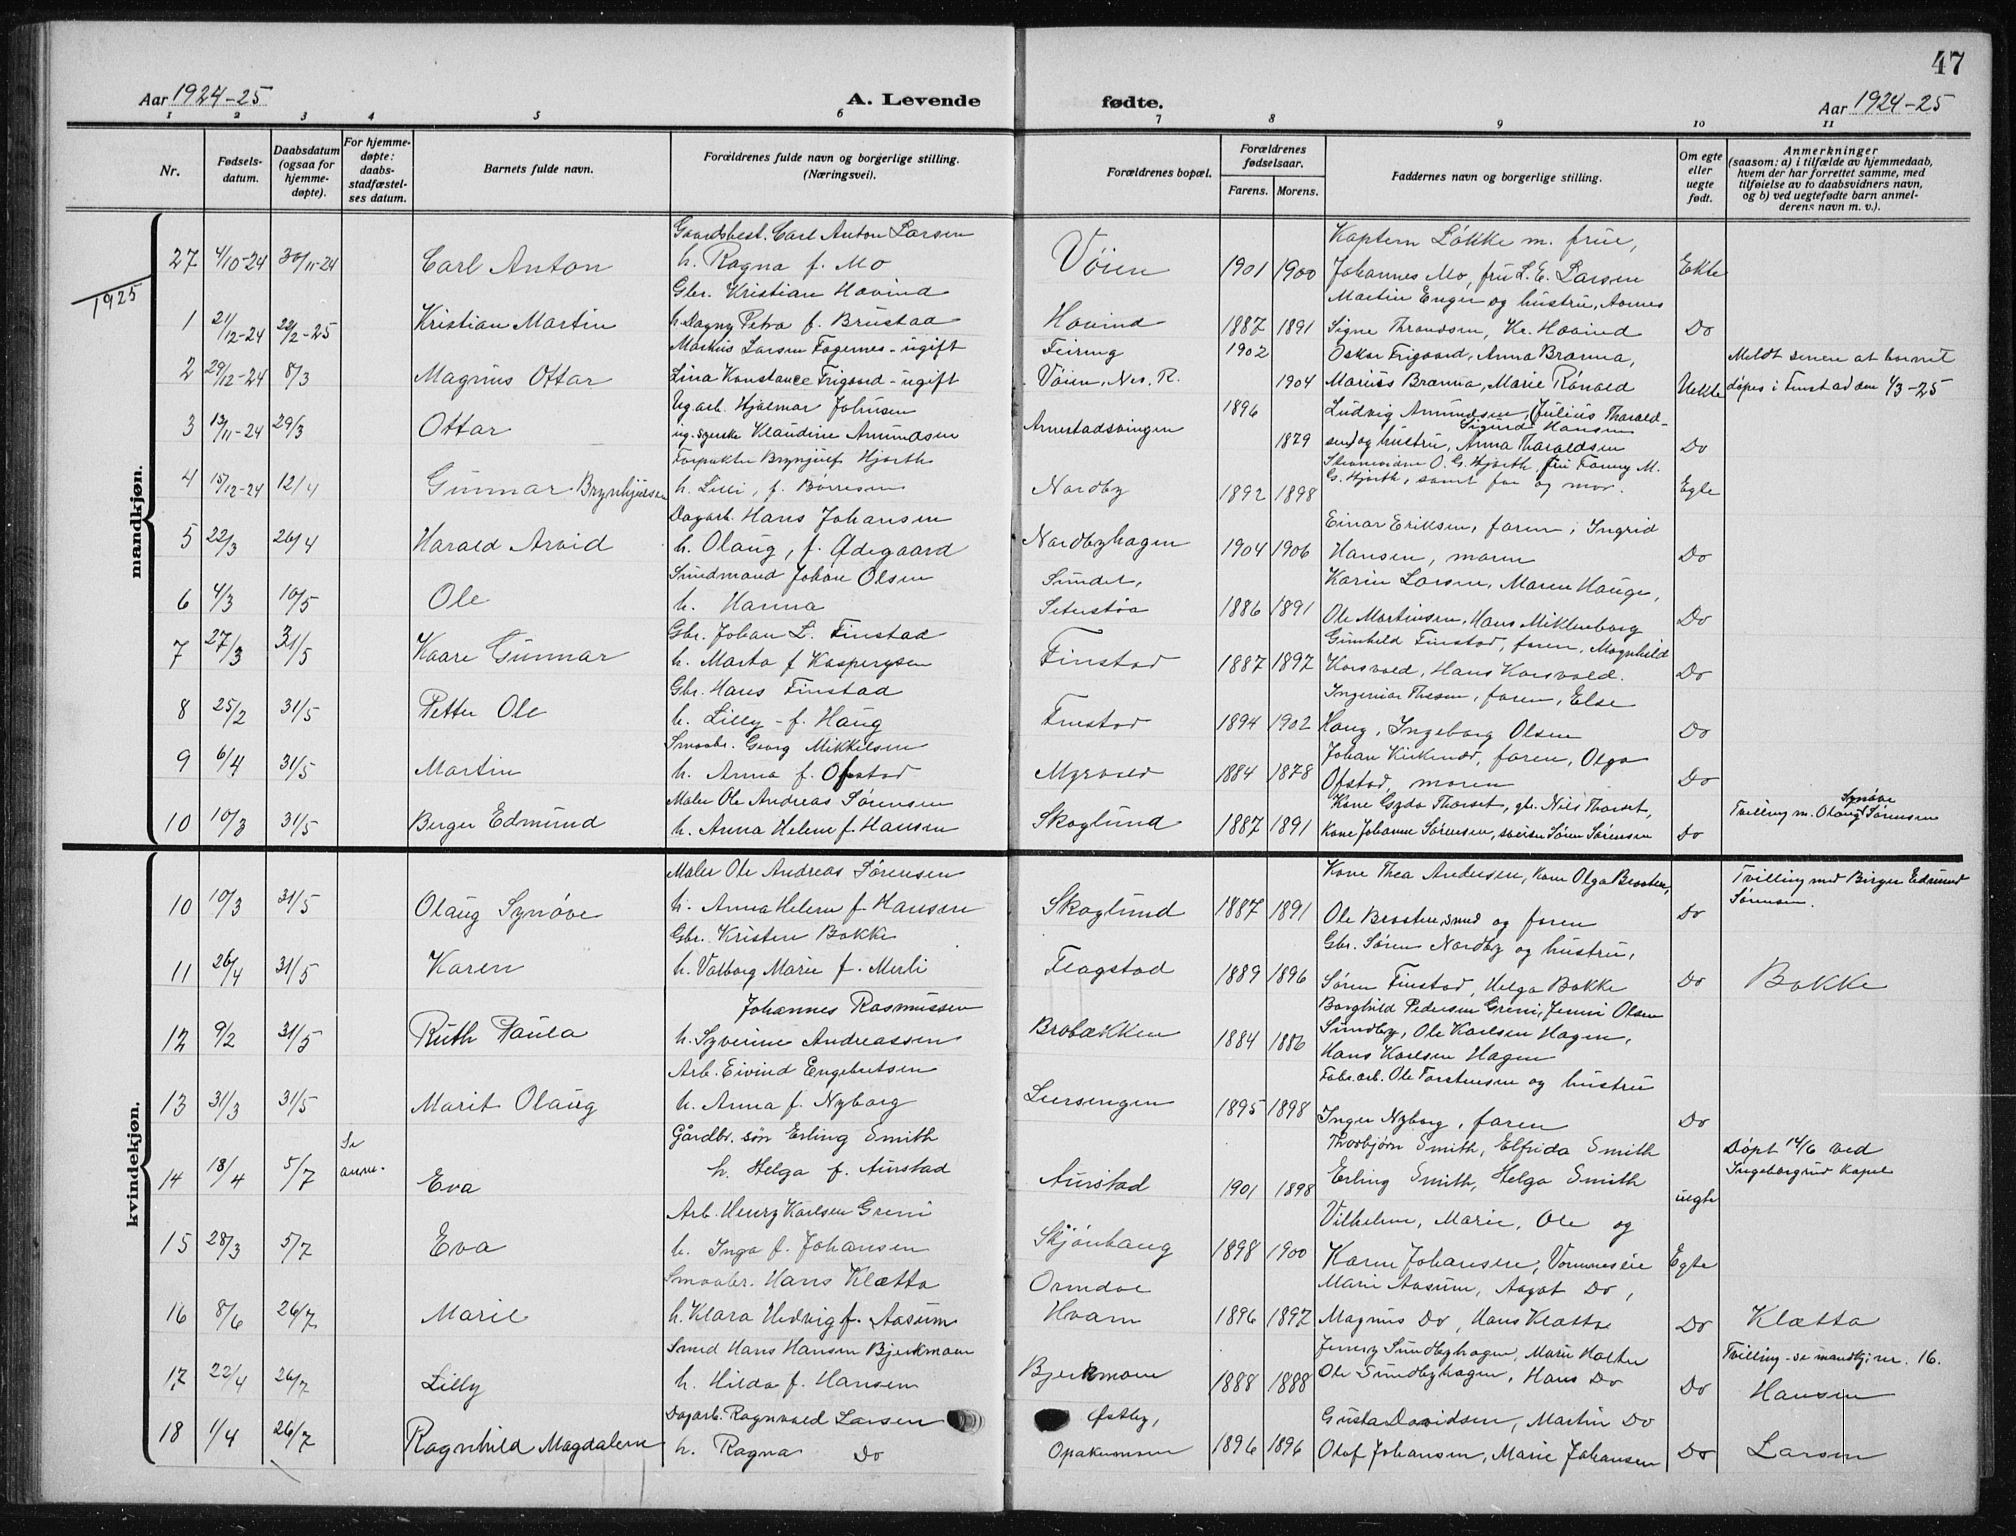 47
Aar 1924-25
A. Levende
fødte.
Aar 1924-25
1 2 3 4 5 6 7 8 9 10 11
Nr.
Fødsels-
datum.
Daabsdatum
(ogsaa for
hjemme-
døpte).
For hjemme-
døpte:
daabs-
stadfæstel-
ses datum.
Barnets fulde navn.
Forældrenes fulde navn og borgerlige stilling.
(Næringsvei).
Forældrenes bopæl.
Forældrenes
fødselsaar.
Farens. Morens.
Faddernes navn og borgerlige stilling.
Om egte
eller
uegte
født.
Anmerkninger
(saasom: a) i tilfælde av hjemmedaab,
hvem der har forrettet samme, med
tilføielse av to daabsvidners navn,
og b) ved uegtefødte barn anmel-
derens navn m. v.).
mandkjøn.
Gaardsbest. Carl Anton Larsen
Kaptein Løkke m. frue,
27 4/10-24 30/11-24 Carl Anton h. Ragna f. Mo Vøien 1901 1900 Johannes Mo, fru L. E. Larsen Ekte
1925
Gbr. Kristian Hovind
Martin Enger og hustru, Aarnes
1 21/12-24 22/2-25 Kristian Martin h. Dagny Petra f. Brustad Hovind 1887 1891 Signe Throndsen, Kr. Hovind Do
Markus Larsen Fagernes - ugift Feiring 1902 Oskar Frigaard, Anna Brænna, Meldt senere at barnet
2 29/12-24 8/3 Magnus Ottar Lina Konstance Frigaard - ugift Vøien, Nes. R. 1904 Marius Brænna, Marie Rånald Uekte døpes i Finstad den 1/3-25
Ug. arb. Hjalmar Johnsen 1896 Ludvig Amundsen, Julius Tharald-
Sigurd Hansen
3 13/11-24 29/3 Ottar ug. syerske Klaudine Amundsen Arnestadsvingen 1879 sen og hustru, Anna Tharaldsen Do
Forpakter Brynjulf Hjorth
O. G. Hjorth, fru Fanny M.
4 15/12-24 12/4 Gunnar Brynhjulsen h. Lilli, f. Børresen Nordby 1892 1898 G. Hjorth, samt far og mor. Egte
Dagarb. Hans Johansen
Einar Eriksen, faren, Ingrid
5 22/3 26/4 Harald Arvid h. Olaug, f. Ødegaard Nordbyhagen 1904 1906 Hansen, moren Do
Sundmand Johan Olsen Sundet, Karin Larsen, Maren Hauge,
6 4/3 10/5 Ole h. Hanna Seterstøa 1886 1891 Ole Martinsen, Hans Miklenborg Do
Gbr. Johan L. Finstad
Gunhild Finstad, faren, Magnhild
7 27/3 31/5 Kaare Gunnar h. Marta f Kaspersen Finstad 1887 1897 Korsvold, Hans Korsvold. Do
Gbr. Hans Finstad
Ingemar Thesen, faren, Else
8 25/2 31/5 Petter Ole h. Lilly - f. Haug Finstad 1894 1902 Haug, Ingeborg Olsen Do
Smaabr. Georg Mikkelsen
Johan Kirkerud, faren, Olga
9 6/4 31/5 Martin h. Anna f. Ofstad Myrvold 1884 1878 Ofstad, moren Do
Maler Ole Andreas Sørensen
Kone Gyda Tharset, gb. Nils Tharset,
Synøve
10 10/3 31/5 Birger Edmund h. Anna Helene f. Hansen Skoglund 1887 1891 Kone Johanne Sørensen, sveiser Søren Sørensen Do Tvilling m. Olaug Sørensen
kvindekjøn.
Maler Ole Andreas Sørensen
Kone Thea Andersen, Kone Olga Braaten, Tvilling med Birger Edmund
10 10/3 31/5 Olaug Synøve h. Anna Helene f. Hansen Skoglund 1887 1891 Ole Braaten, smed og faren Do Sørensen.
Gbr. Kristen Bakke
Gbr. Søren Nordby og hustru,
11 26/4 31/5 Karen h. Valborg Marie f. Merli Flagstad 1889 1896 Søren Finstad, Helga Bakke Do Bakke
Johannes Rasmussen
Borghild Pedersen Greni, Jenni Olsen
12 9/2 31/5 Ruth Paula h. Syverine Andreassen Brobækken 1884 1886 Sundby, Ole Karlsen Hagen,
Hans Karlsen Hagen
Arb. Eivind Engebretsen
Fabr.arb. Ole Torstensen og hustru
13 31/3 31/5 Marit Olaug h. Anna f. Nyborg Lersengen 1895 1898 Inger Nyborg, faren Do
Gårdbr. søn Erling Smith
Thorbjørn Smith, Elfrida Smith
Se
anm. Døpt 14/6 ved
14 18/4 5/7 Eva h. Helga f. Aurstad Aurstad 1901 1898 Erling Smith, Helga Smith uegte Ingeborgrud Kapel
Arb. Henry Karlsen Greni
Vilhelm, Marie, Ole og
15 28/3 5/7 Eva h. Inga f. Johansen Skjønhaug 1898 1900 Karen Johansen, Vormneseie Egte
Smaabr. Hans Klætta Ormdoe Marie Aasum, Aagot Do,
16 8/6 26/7 Marie h. Klara Hedvig f. Aasum Hvam 1896 1897 Magnus Do, Hans Klætta Do Klætta
Smed Hans Hansen Bjerkmoen
Jenny Sundbyhagen, Marie Holter Tvilling - se mandkj. nr. 16.
17 22/4 26/7 Lilly h. Hilda f. Hansen Bjerkmoen 1888 1888 Ole Sundbyhagen, Hans Do Do Hansen
Dagarb. Ragnvald Larsen Østby, Gusta Davidsen, Martin Do
18 1/4 26/7 Ragnhild Magdalene h. Ragna Do Opakermoen 1896 1896 Olaf Johansen, Marie Johansen Do Larsen